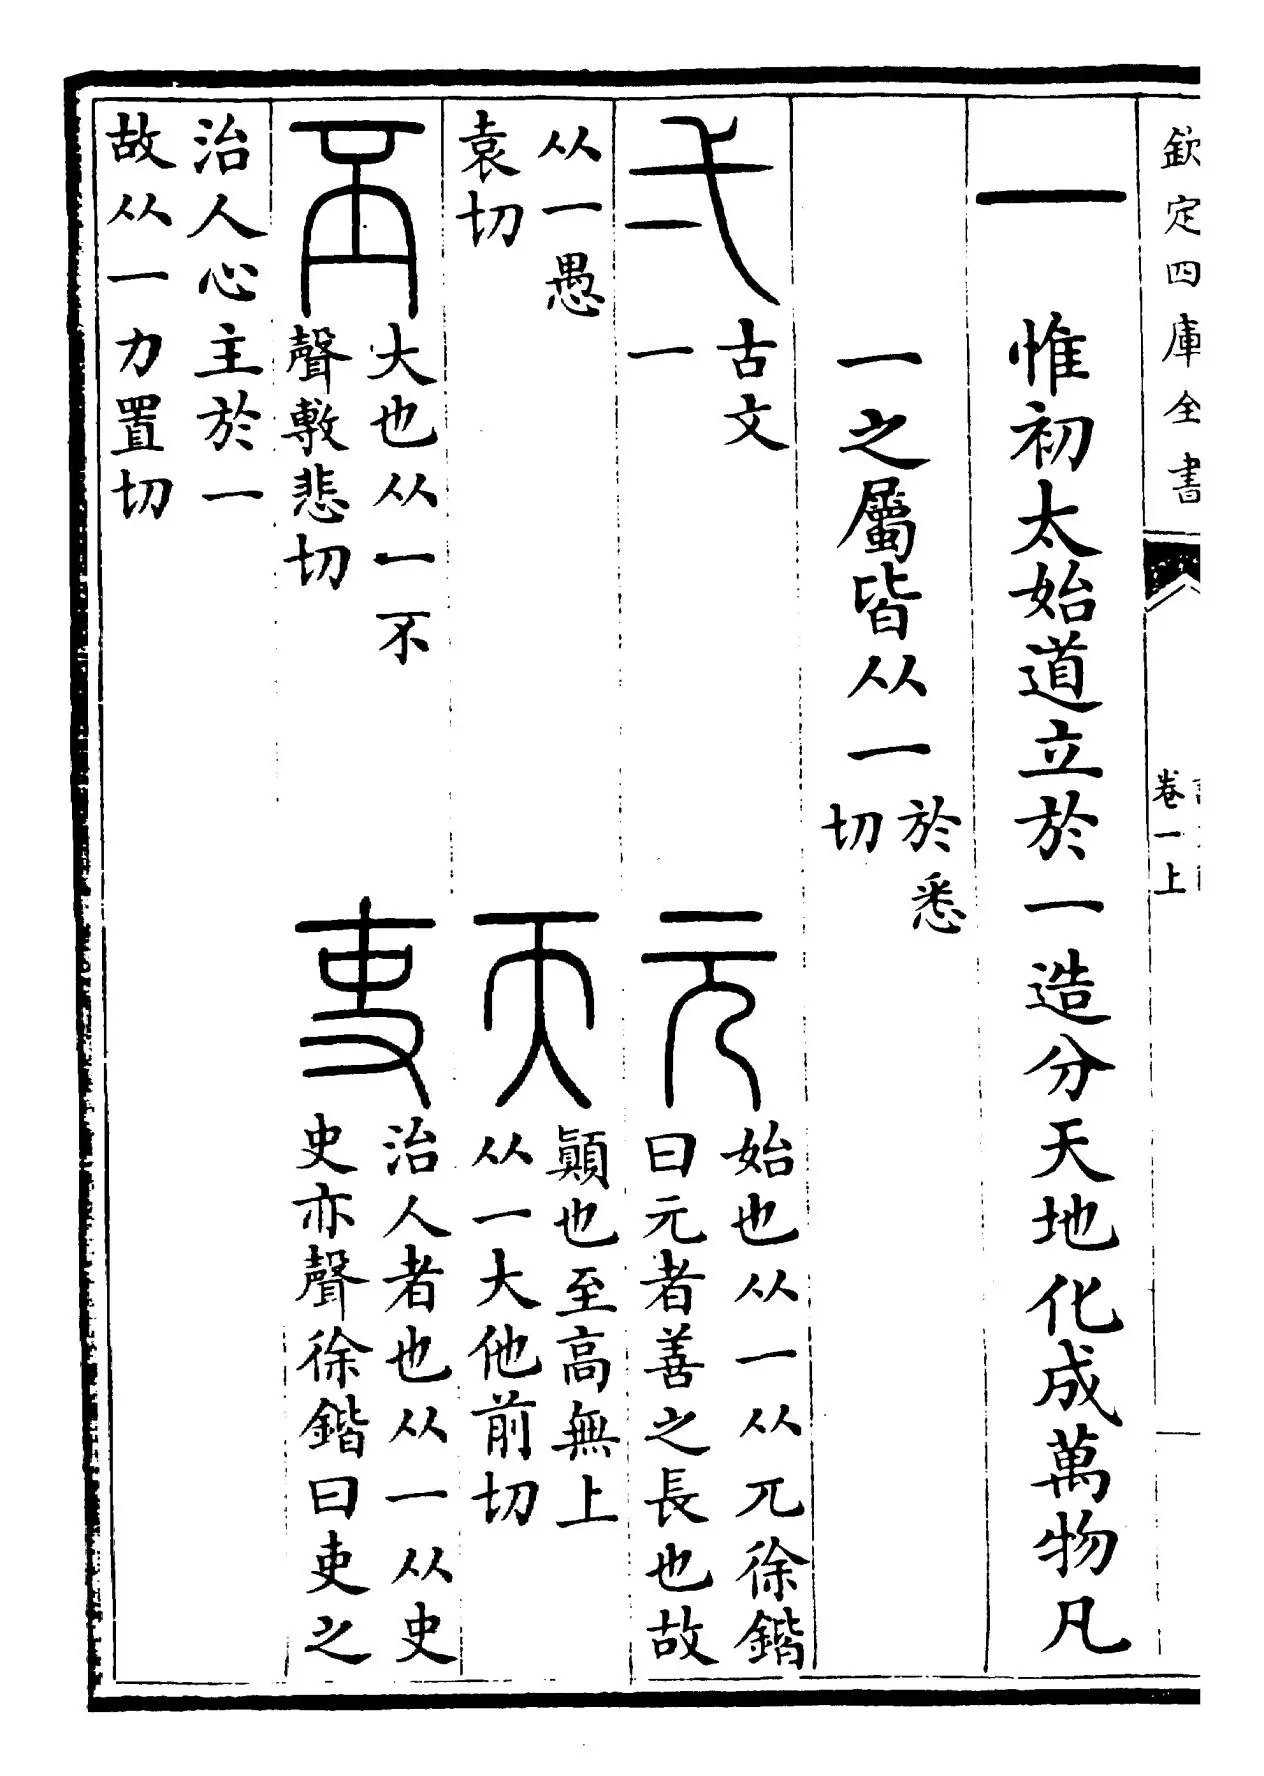 欽定四庫全書
卷一上
一 惟初太始道立於一造分天地化成萬物凡
一之屬皆从一
於悉
切
弌
古文
一
元
始也从一从兀徐鍇
曰元者善之長也故
从一愚
袁切
天
顚也至高無上
从一大他前切
丕
大也从一不
聲敷悲切
吏
治人者也从一从史
史亦聲徐鍇曰吏之
治人心主於一
故从一力置切